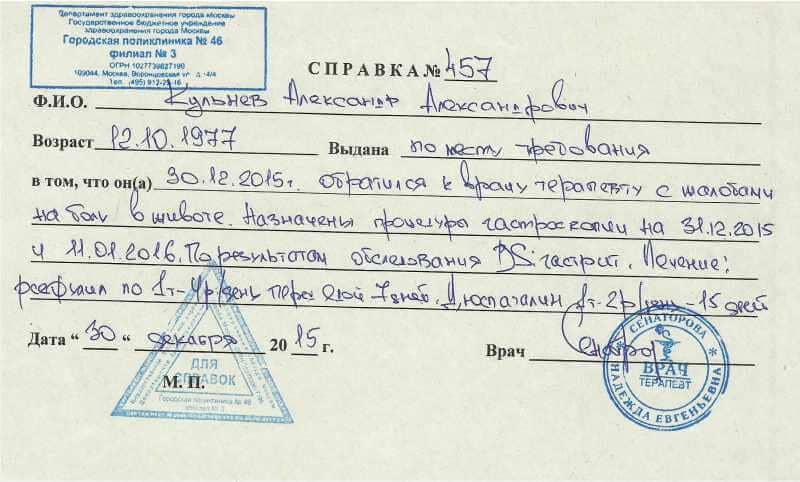 Департамент здравоохранения города Москвы
Государственное бюджетное учреждение
здравоохранения города Москвы
Городская поликлиника № 46
филиал № 3
ОГРН 1027739827190
109044, Москва, Воронцовская ул д. 14/4
Тел. (495) 912-23-16
СПРАВКА № 457
Ф.И.О. Кульнев Александр Александрович
Возраст 12.10.1977 Выдана по месту требования
в том, что он(а) 30.12.2015г. обратился к врачу терапевту с жалобами
на боли в животе. Назначены процедуры гастроскопии на 31.12.2015
и 11.01.2016. По результатам обследования DS: гастрит. Лечение:
по 1т-4р/день 7 дней. Дюспаталин 1т-2р/день-15 дней
Дата “ 30 “ декабря 20 15 г. Врач
М. П.
ДЛЯ
СПРАВОК
Городская поликлиника № 46
филиал № 3
СЕНАТОРОВА
НАДЕЖДА ЕВГЕНЬЕВНА
ВРАЧ
ТЕРАПЕВТ